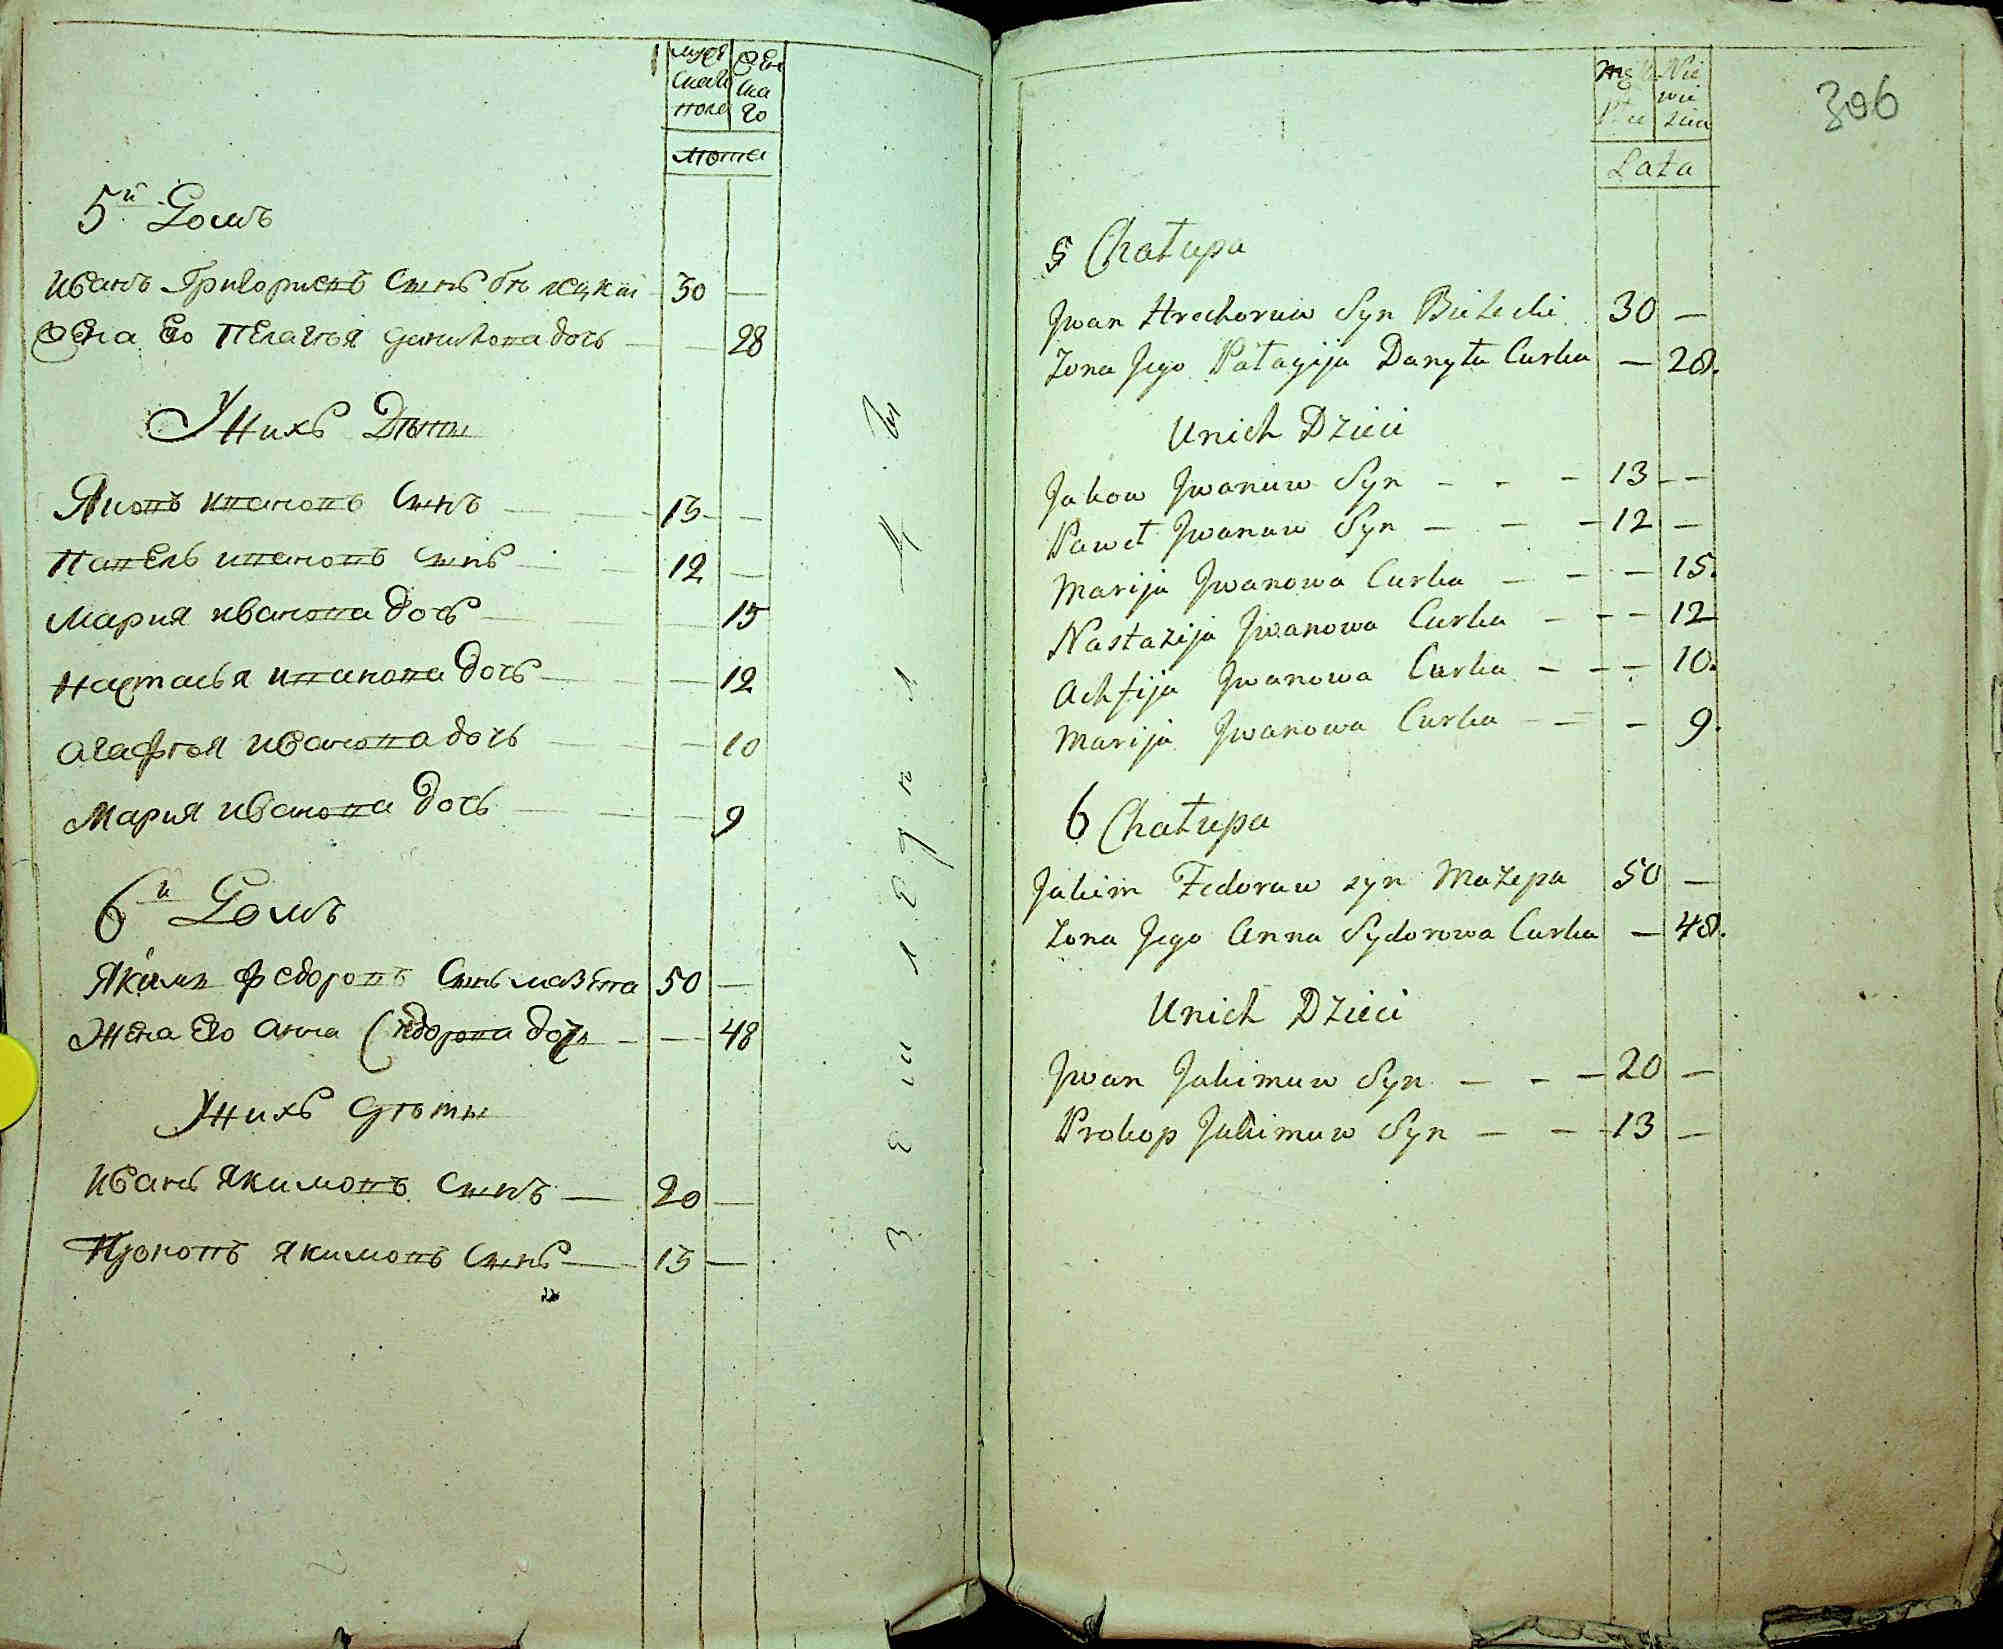 мужескаго пола
женскаго
лѣта
5й Домъ
Иванъ Григориевъ Сынъ Бѣлецкій 30 —
Жена Его Пелагѣя Данилова дочь — 28
У Нихъ Дѣти
Яковъ Ивановъ Сынъ 13 —
Павелъ Ивановъ Сынъ 12 —
Мария Иванова дочь — 15
Настасья Иванова дочь — 12
Агафья Иванова дочь — 10
Мария Иванова дочь — 9
6й Домъ
Якимъ Федоровъ Сынъ Мазепа 50 —
Жена Его Анна Сидорова дочь — 48
У Нихъ Дѣти
Иванъ Якимовъ Сынъ — 20 —
Прокопъ Якимовъ Сынъ — 13 —
306
Męskie Ptci
Niewieściey
Lata
5 Chałupa
Jwan Hrechoruw Syn Bielecki 30 —
Żona Jego Pałagija Danyła Curka — 28.
Unich Dzieci
Jakow Jwanuw Syn - - - 13 - -
Paweł Jwanuw Syn — — — 12 —
Marija Jwanowa Curka — — — 15.
Nastazija Jwanowa Curka — — — 12
Achfija Jwanowa Curka — — — 10.
Marija Jwanowa Curka — — — 9.
6 Chałupa
Jakim Fedoruw syn Mazepa 50 —
Żona Jego Anna Sydorowa Curka — 48.
Unich Dzieci
Jwan Jakimuw Syn — — — 20 —
Prokop Jakimuw Syn — — — 13 —